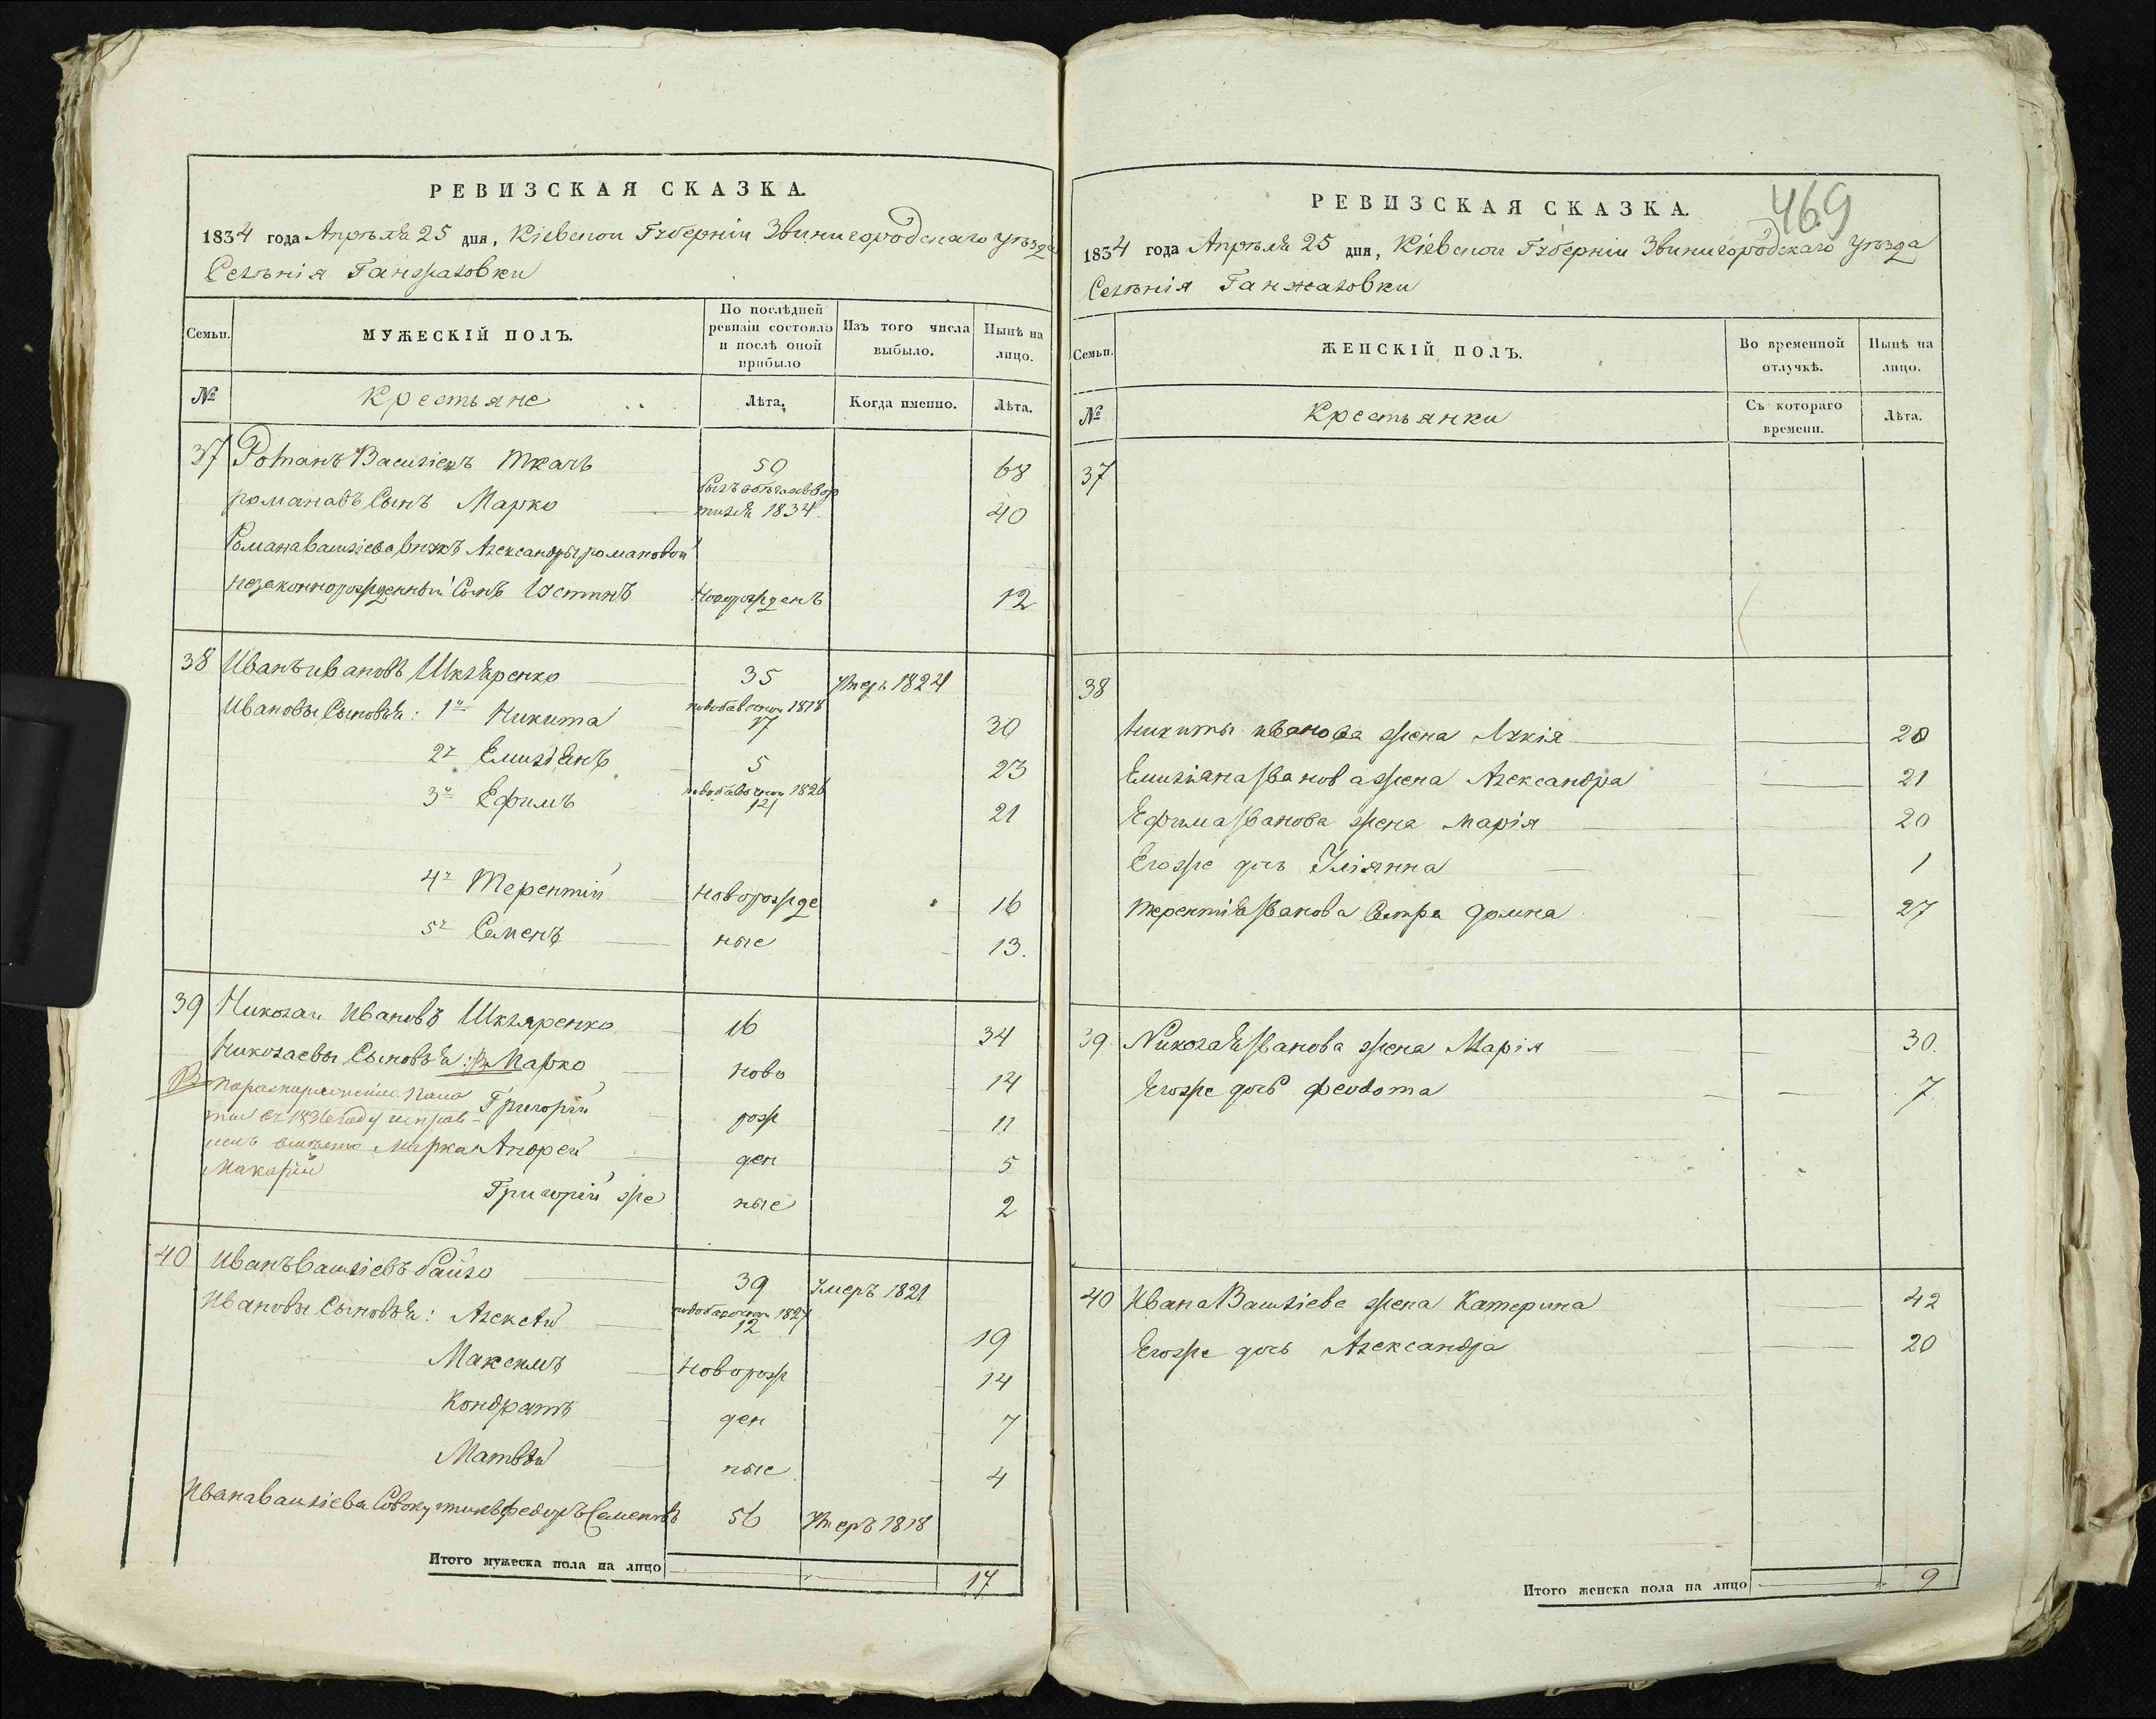 РЕВИЗСКАЯ СКАЗКА.
1834 года Апрѣля 25 дня, Кіевской Губерніи Звинигородскаго уѣзда
Селѣнія Ганжаловки
Семьи.
МУЖЕСКІЙ ПОЛЪ.
По послѣдней ревизіи состояло и послѣ оной прибыло
Изъ того числа выбыло.
Нынѣ на лицо.
№
Крестьяне
Лѣта.
Когда именно.
Лѣта.
37 Романъ Василіевъ Ткачъ 50 68
романавъ Сынъ Марко 1834. 40
Романа Василіева внукъ Александры романовой
незаконнорожденный Сынъ Устинъ Новорожденъ 12
38 Иванъ ивановъ Шкляренко 35 Умеръ 1824
Ивановы Сыновья: 1й Никита 1818 17 30
2й Емиліянъ 5 23
3й Ефимъ 1826 14 21
4й Терентій Новорожде 16
5й Семенъ ные 13.
39 Николай Ивановъ Шкляренко 16 34
Николаевы Сыновья: Марко ново 14
Григорій рож 11
Андрей ден 5
Григорій же ные 2
въ 1836 году вмѣсто Марка
Макарій
40 Иванъ Василіевъ Байло 39 Умеръ 1821
Ивановы Сыновья: Алексѣй 1827 12 19
Максимъ Новорож 14
Кондратъ ден 7
Матвѣй ные 4
Ивана василіева Федоръ Семеновъ 56 Умеръ 1818
Итого мужеска пола на лицо 17
469
РЕВИЗСКАЯ СКАЗКА.
1834 года Апрѣля 25 дня, Кіевской Губерніи Звинигородскаго Уѣзда
Селѣнія Ганжаловки
Семьи.
ЖЕНСКІЙ ПОЛЪ.
Во временной отлучкѣ.
Нынѣ на лицо.
№
Крестьянки
Съ котораго времени.
Лѣта.
37
38
Никиты иванова жена Лукія 20
Емиліана Иванова жена Александра 21
Ефима Иванова жена Марія 20
Егоже дочь Уліянна 1
Терентія Иванова Сестра Домна 27
39 Николая Иванова жена Марія 30.
Егоже дочь Феодота 7
40 Ивана Василіева жена Катерина 42
Егоже дочь Александра 20
Итого женска пола на лицо 9